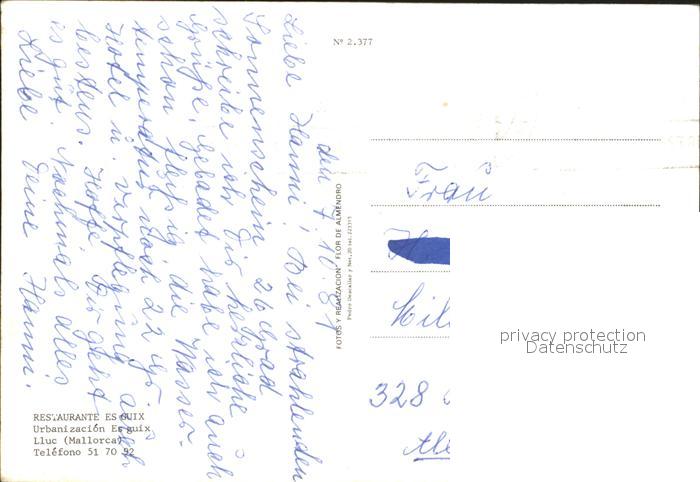 Nº 2.377
den 7.10.81
Liebe Hanni! Bei strahlenden
Sonnenschein 26 Grad
schreibe ich Dir herzliche
Grüße, gebadet habe ich auch
schon fleißig die Wasser-
temperatur noch 22 Gr.
Hotel u. Verpflegung alles
bestens. Hoffe Dir geht
es gut. Nochmals alles
Liebe Deine Hanni.
FOTOS Y REALIZACION FLOR DE ALMENDRO
RESTAURANTE ES GUIX
Urbanización Es guix
Lluc (Mallorca)
Teléfono 51 70 92
Frau
328
privacy protection
Datenschutz